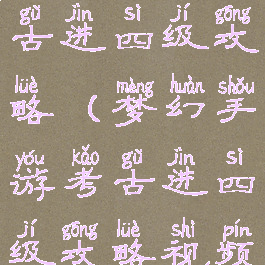 gǔ jìn sì jí gōng
古进四级攻
lüè mèng huàn shǒu
略（梦幻手
yóu kǎo gǔ jìn sì
游考古进四
jí gōng lüè shì pín
级攻略视频